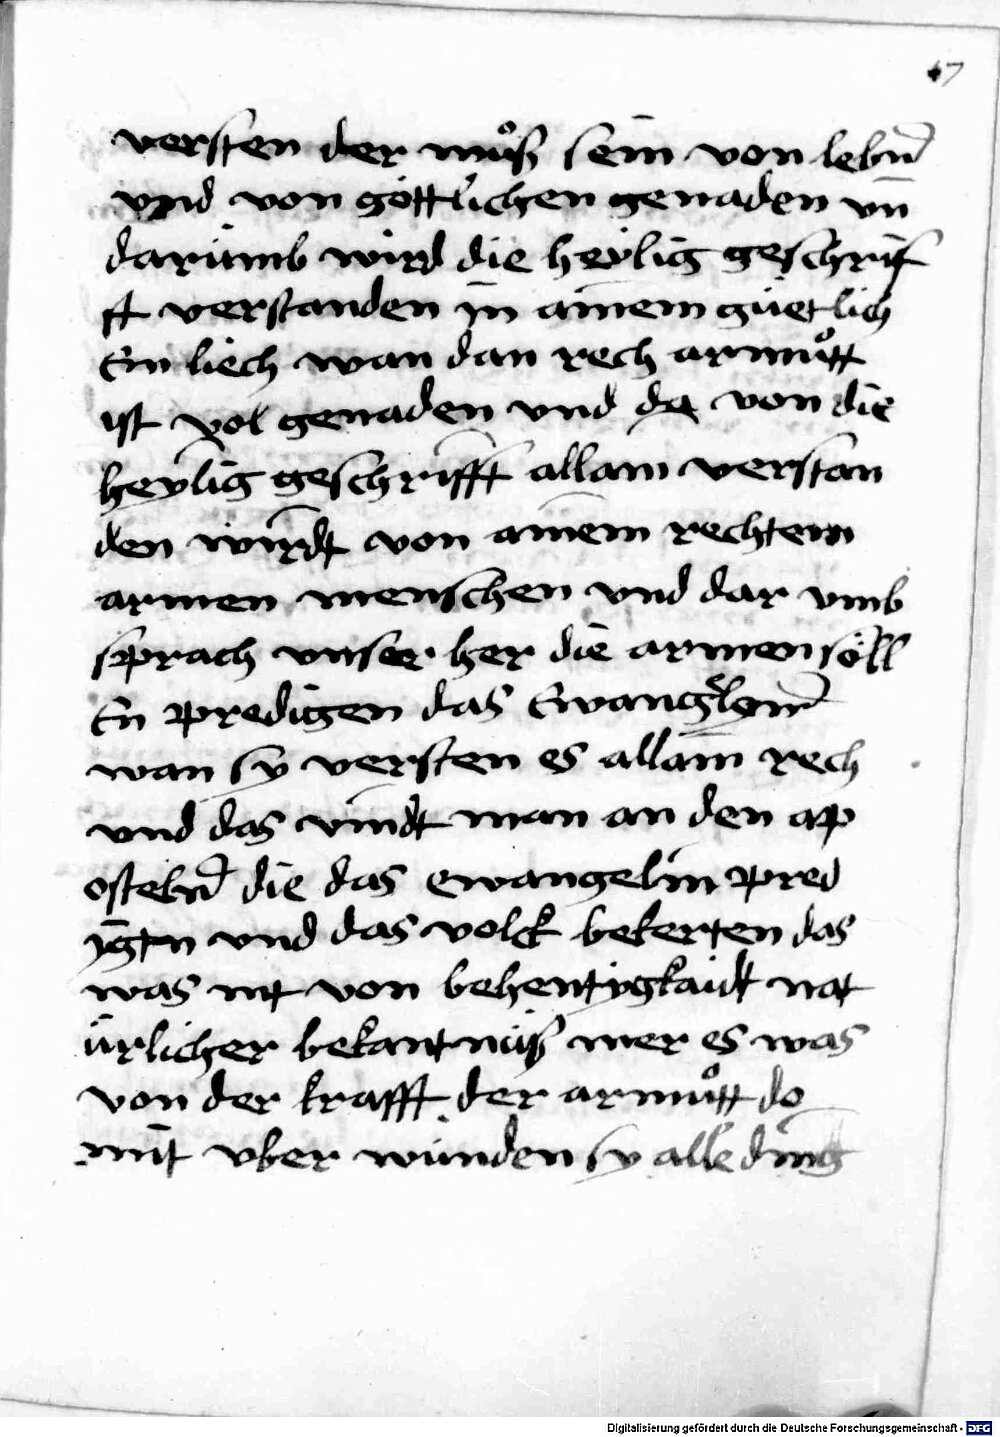 17
versten der muͦß sein von lebn̄
vnd von göttlichen genaden vn̄
darumb wird die heÿlig geschrif
ft verstanden jn ainem güetlich
En liech wan dan rech armuͦtt
ist vol genaden vnd da von die
heÿlig geschrifft allain verstan
den wirdt von ainem rechtenn
armen menschen vnd dar vmb
sprach vnser her die armen söll
En predigen das
wan sy versten es allain rech
vnd das vindt man an den ap
osteln̄ die das ewangelin pred
jgtn vnd das volck bekerten das
was nit von behentigkaidt nat
ürlicher bekantnüß mer es was
von der krafft der armuͦtt do
mit vber wünden sy alle ding
Digitalisierung gefördert durch die Deutsche Forschungsgemeinschaft - DFG